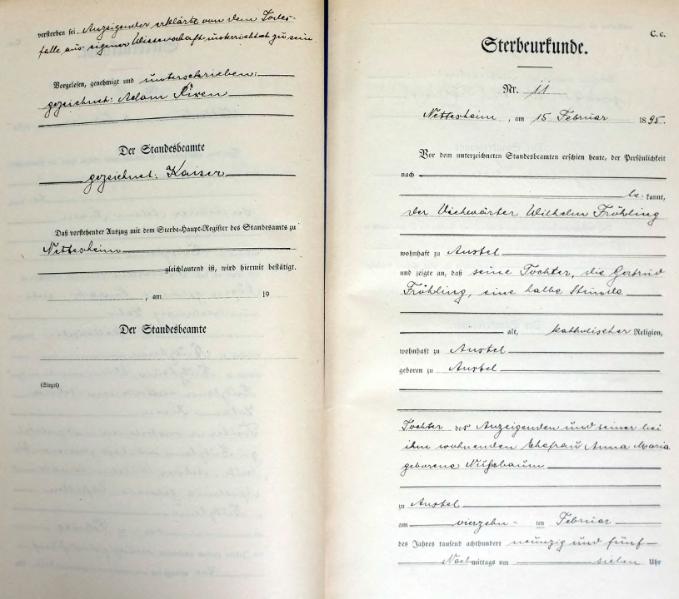 verstorben sei. Anzeigender erklärte von dem Todes-
falle aus eigener Wissenschaft unterrichtet zu sein
Vorgelesen, genehmigt und unterschrieben:
gezeichnet: Adam
Der Standesbeamte
gezeichnet: Kaiser
Daß vorstehender Auszug mit dem Sterbe-Haupt-Register des Standesamts zu
Nettesheim
gleichlautend ist, wird hiermit bestätigt.
, am 19
Der Standesbeamte
(Siegel)
C. c.
Sterbeurkunde.
Nr. 11
Nettesheim, am 15 Februar 1895.
Vor dem unterzeichneten Standesbeamten erschien heute, der Persönlichkeit
nach
be kannt,
der Viehwärter Wilhelm Fröhling
wohnhaft zu Anstel
und zeigte an, daß seine Tochter, die Gertrud
Fröhling, eine halbe Stunde
alt, katholischer Religion,
wohnhaft zu Anstel
geboren zu Anstel
Tochter des Anzeigenden und seiner bei
ihm wohnenden Ehefrau Anna Maria
geborene Nußbaum
zu Anstel
am vierzehn- ten Februar
des Jahres tausend achthundert neunzig und fünf
Nachmittags um sieben Uhr